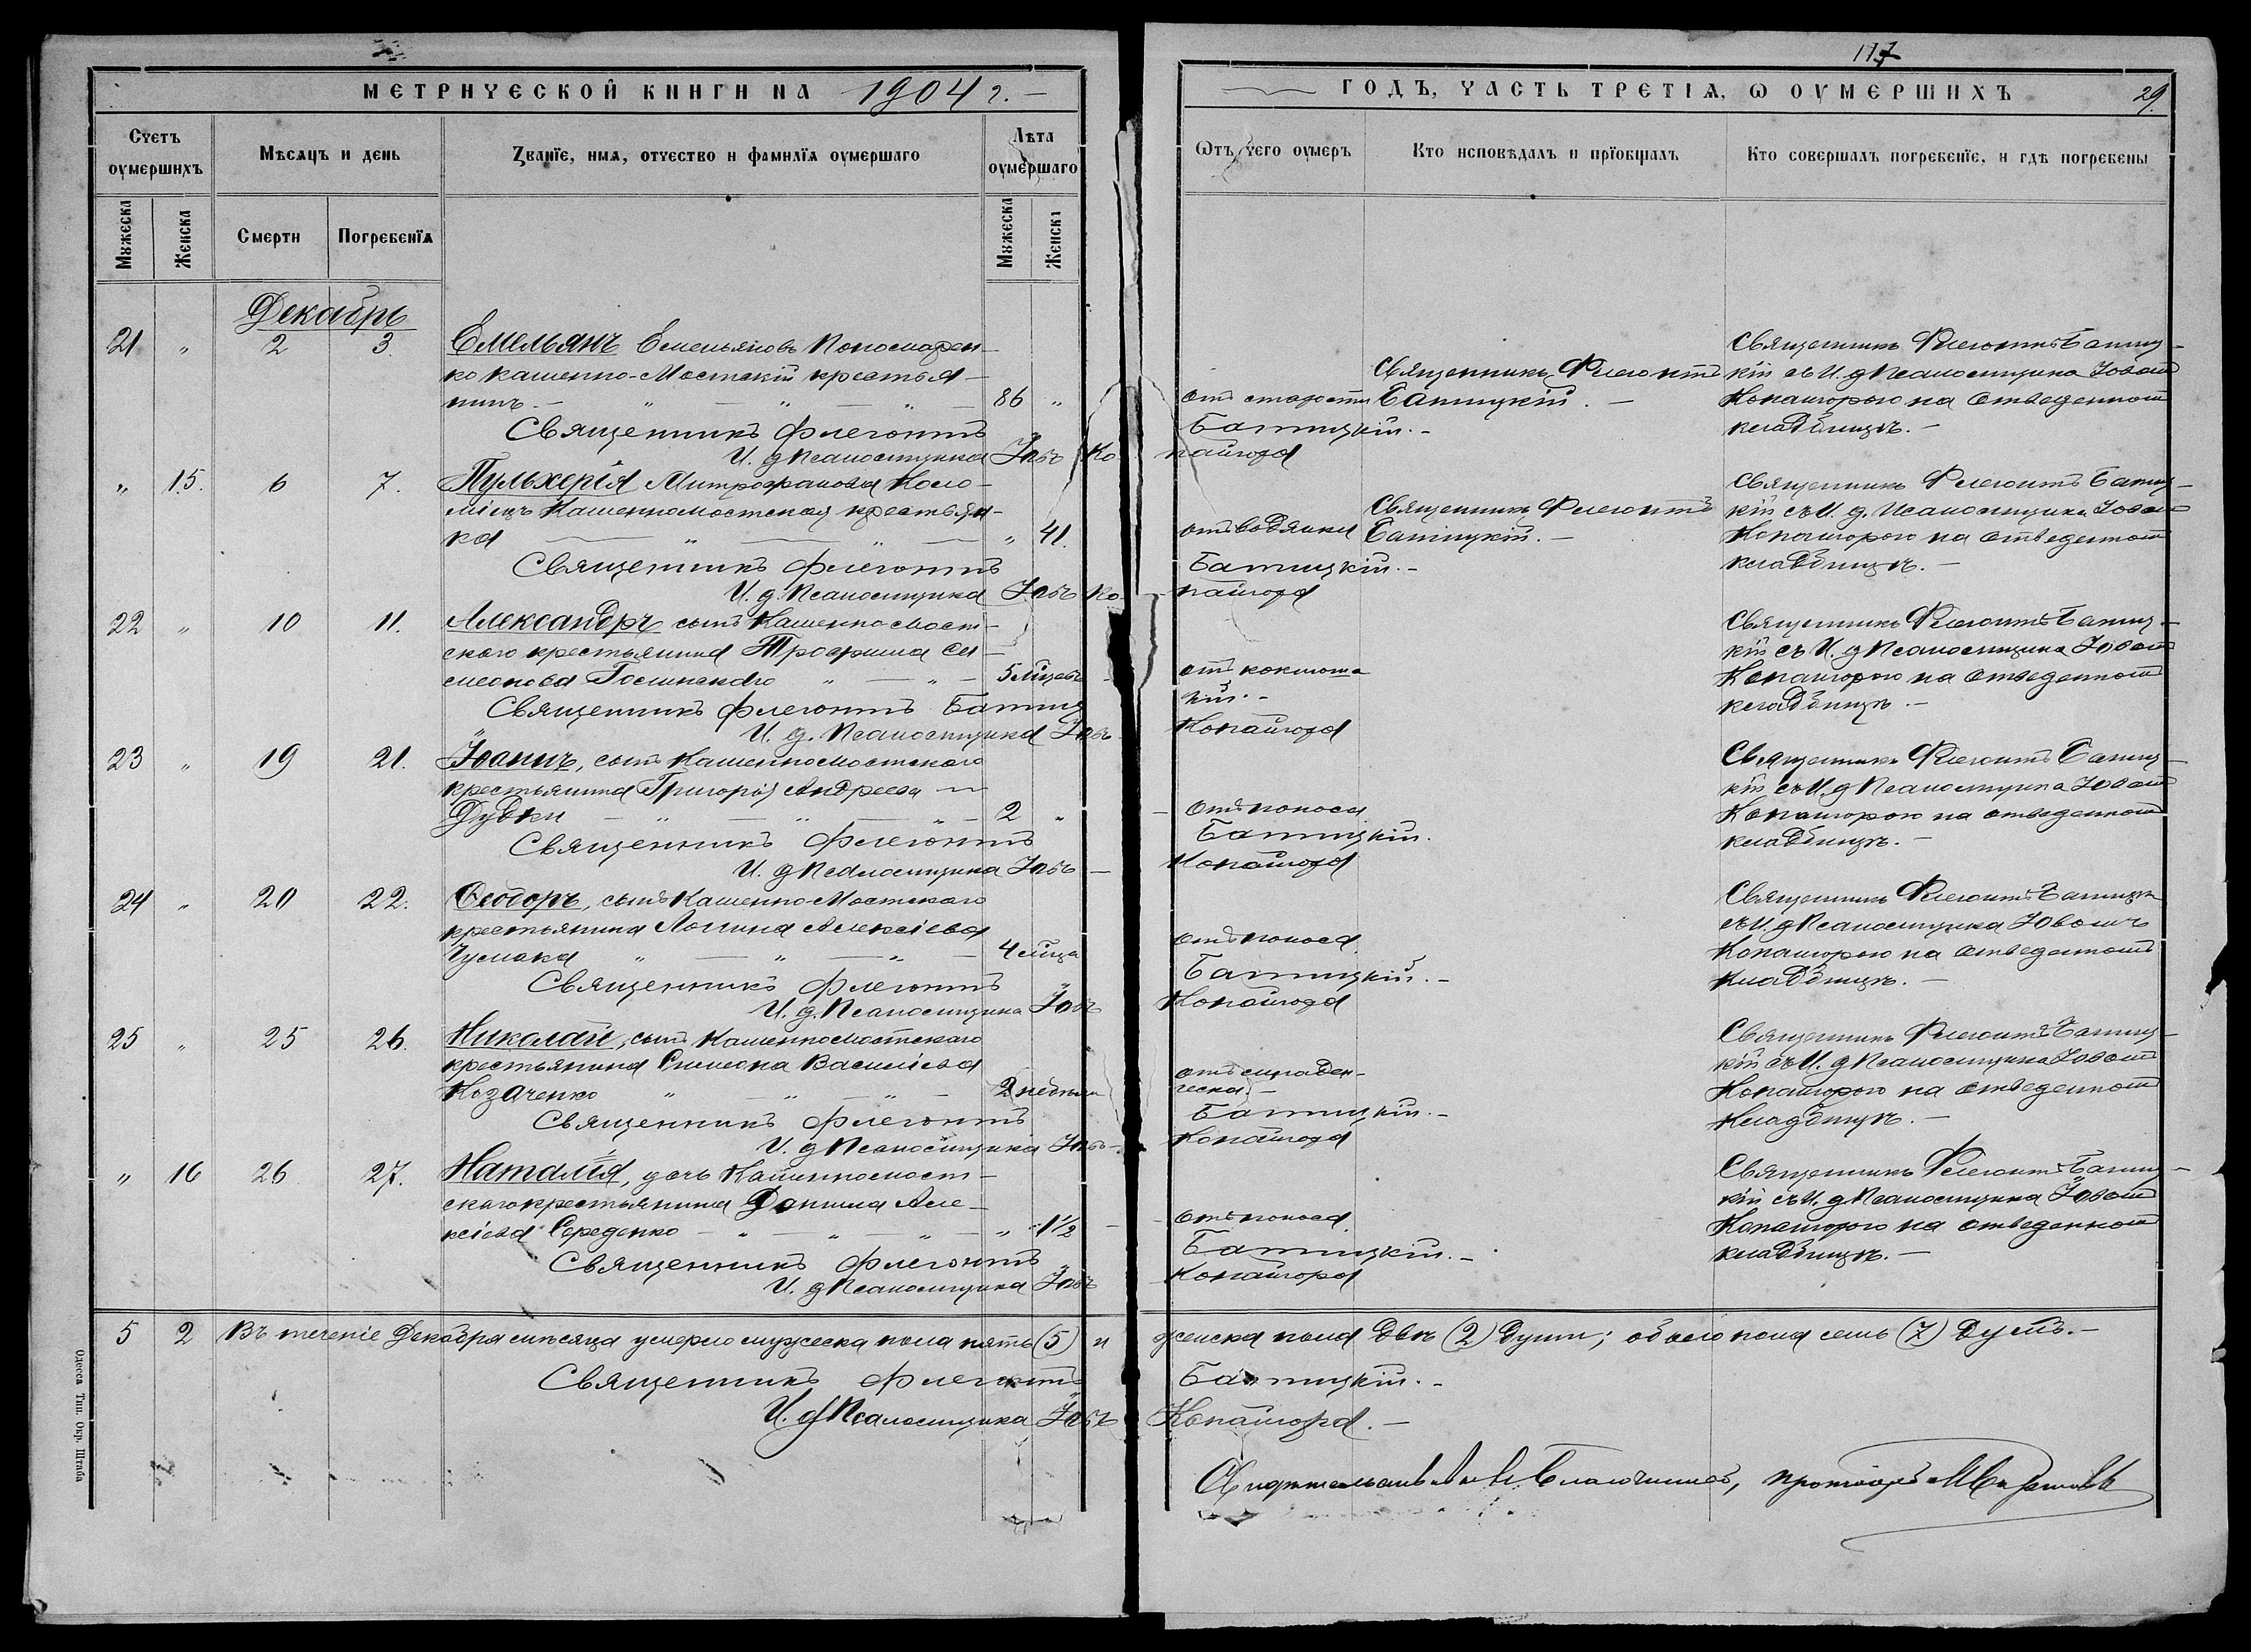 117
МЕТРИЧЕСКОЙ КНИГИ НА 1904 г.
ГОДЪ, ЧАСТЬ ТРЕТІЯ, Ѡ ОУМЕРШИХЪ
29.
Счетъ оумершихъ
Мѣсяцъ и день
Званїе, имя, отчество и фамилїя оумершаго
Лѣта оумершаго
Ѿтъ чего оумеръ
Кто исповѣдалъ и прїобщалъ
Кто совершалъ погребенїе, и гдѣ погребены
Мужеска
Женска
Смерти
Погребенїя
Мужеска
Женска
Декабрь
21 " 2 3. Емельянъ Емельяновъ Пономарен-
ко Каменно-Мостскій крестья-
нинъ 86 "
отъ старости
Священникъ Флегонтъ
Батицкій.
Священникъ Флегонтъ Батиц-
кій съ И. д Псаломщика Іовомъ
Копайгорою на отведенномъ
кладбищѣ.
Священникъ Флегонтъ Батицкій.
И. д Псаломщика Іовъ Копайгора
" 15. 6 7. Пульхерія Митрофанова Коло-
міецъ Каменномостская крестьян-
ка " 41.
отъ водянки
Священникъ Флегонтъ
Батицкій.
Священникъ Флегонтъ Батиц-
кій съ И. д. Псаломщика Іовомъ
Копайгорою на отведенномъ
кладбищѣ.
Священникъ Флегонтъ Батицкій.
И. д. Псаломщика Іовъ Копайгора
22 " 10 11. Александръ сынъ Каменномост-
скаго крестьянина Трофима Си-
меонова 5 мѣцевъ
отъ коклюша
Священникъ Флегонтъ Батиц-
кій съ И. д Псаломщика Іовомъ
Копайгорою на отведенномъ
кладбищѣ.
Священникъ Флегонтъ Батицкій.
И. д. Псаломщика Іовъ Копайгора
23 " 19 21. Іоаннъ, сынъ Каменномостскаго
крестьянина Григорія Андреева
Дудки 2 "
отъ поноса
Священникъ Флегонтъ Батиц-
кій съ И. д Псаломщика Іовомъ
Копайгорою на отведенномъ
кладбищѣ.
Священникъ Флегонтъ Батицкій.
И. д Псаломщика Іовъ Копайгора
24 " 20 22. Ѳеодоръ, сынъ Каменно-Мостскаго
крестьянина Логина Алексіева
Чумака 4 мѣца
отъ поноса
Священникъ Флегонтъ Батицкій
съ И. д Псаломщика Іовомъ
Копайгорою на отведенномъ
кладбищѣ.
Священникъ Флегонтъ Батицкій.
И. д. Псаломщика Іовъ Копайгора
25 " 25 26. Николай, сынъ Каменномостскаго
крестьянина Симеона Василіева
Козаченко 2 недѣли
отъ младен-
ческа.
Священникъ Флегонтъ Батиц-
кій съ И. д Псаломщика Іовомъ
Копайгорою на отведенномъ
кладбищѣ.
Священникъ Флегонтъ Батицкій.
И. д Псаломщика Іовъ Копайгора
" 16 26 27. Наталія, дочь Каменномост-
скаго крестьянина Даніила Але-
ксіева Середенко " 1½
отъ поноса
Священникъ Флегонтъ Батиц-
кій съ И. д Псаломщика Іовомъ
Копайгорою на отведенномъ
кладбищѣ.
Священникъ Флегонтъ Батицкій.
И. д Псаломщика Іовъ Копайгора
5 2 Въ теченіе Декабря мѣсяца умерло мужеска пола пять (5) и женска пола двѣ (2) души; обоего пола семь (7) душъ.
Священникъ Флегонтъ Батицкій.
И. д Псаломщика Іовъ Копайгора.
Благочинный,
Одесса Тип. Окр. Штаба